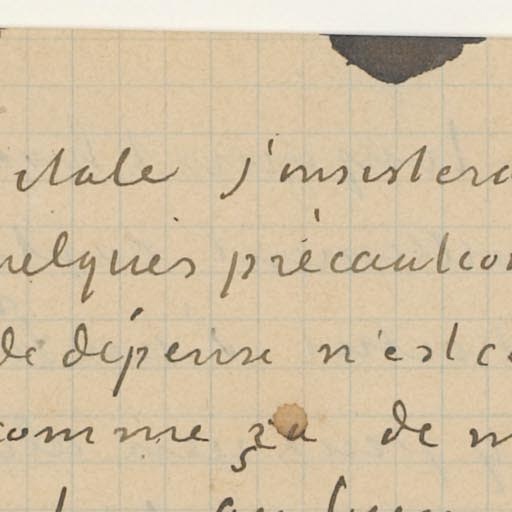 itale j'insistera
uelques précaution
de dépense n'est ce
comme ça de m